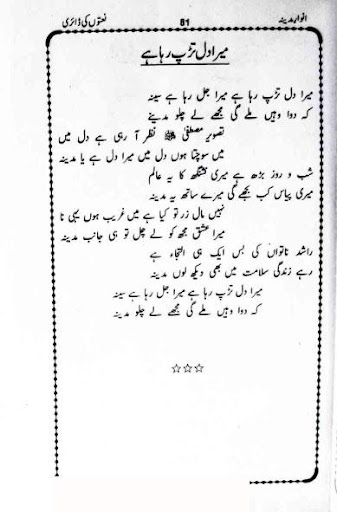 انوار مدینہ 81 نعتوں کی ڈائری
میرا دل تڑپ رہا ہے
میرا دل تڑپ رہا ہے میرا جل رہا ہے سینہ
کہ دوا وہیں ملے گی مجھے لے چلو مدینے
تصویر مصطفیٰ ﷺ نظر آ رہی ہے دل میں
میں سوچتا ہوں دل میں میرا دل ہے یا مدینہ
شب و روز بڑھ ہے میری تشنگی کا یہ عالم
میری پیاس کب بجھے گی میرے ساتھ یہ مدینہ
نہیں مال زر تو کیا ہے میں غریب ہوں یہی نا
میرا عشق مجھ کو لے چل تو ہی جانب مدینہ
راشد ناتواں کی بس ایک ہی التجاء ہے
رہے زندگی سلامت میں بھی دیکھ لوں مدینہ
میرا دل تڑپ رہا ہے میرا جل رہا ہے سینہ
کہ دوا وہیں ملے گی مجھے لے چلو مدینہ
☆☆☆